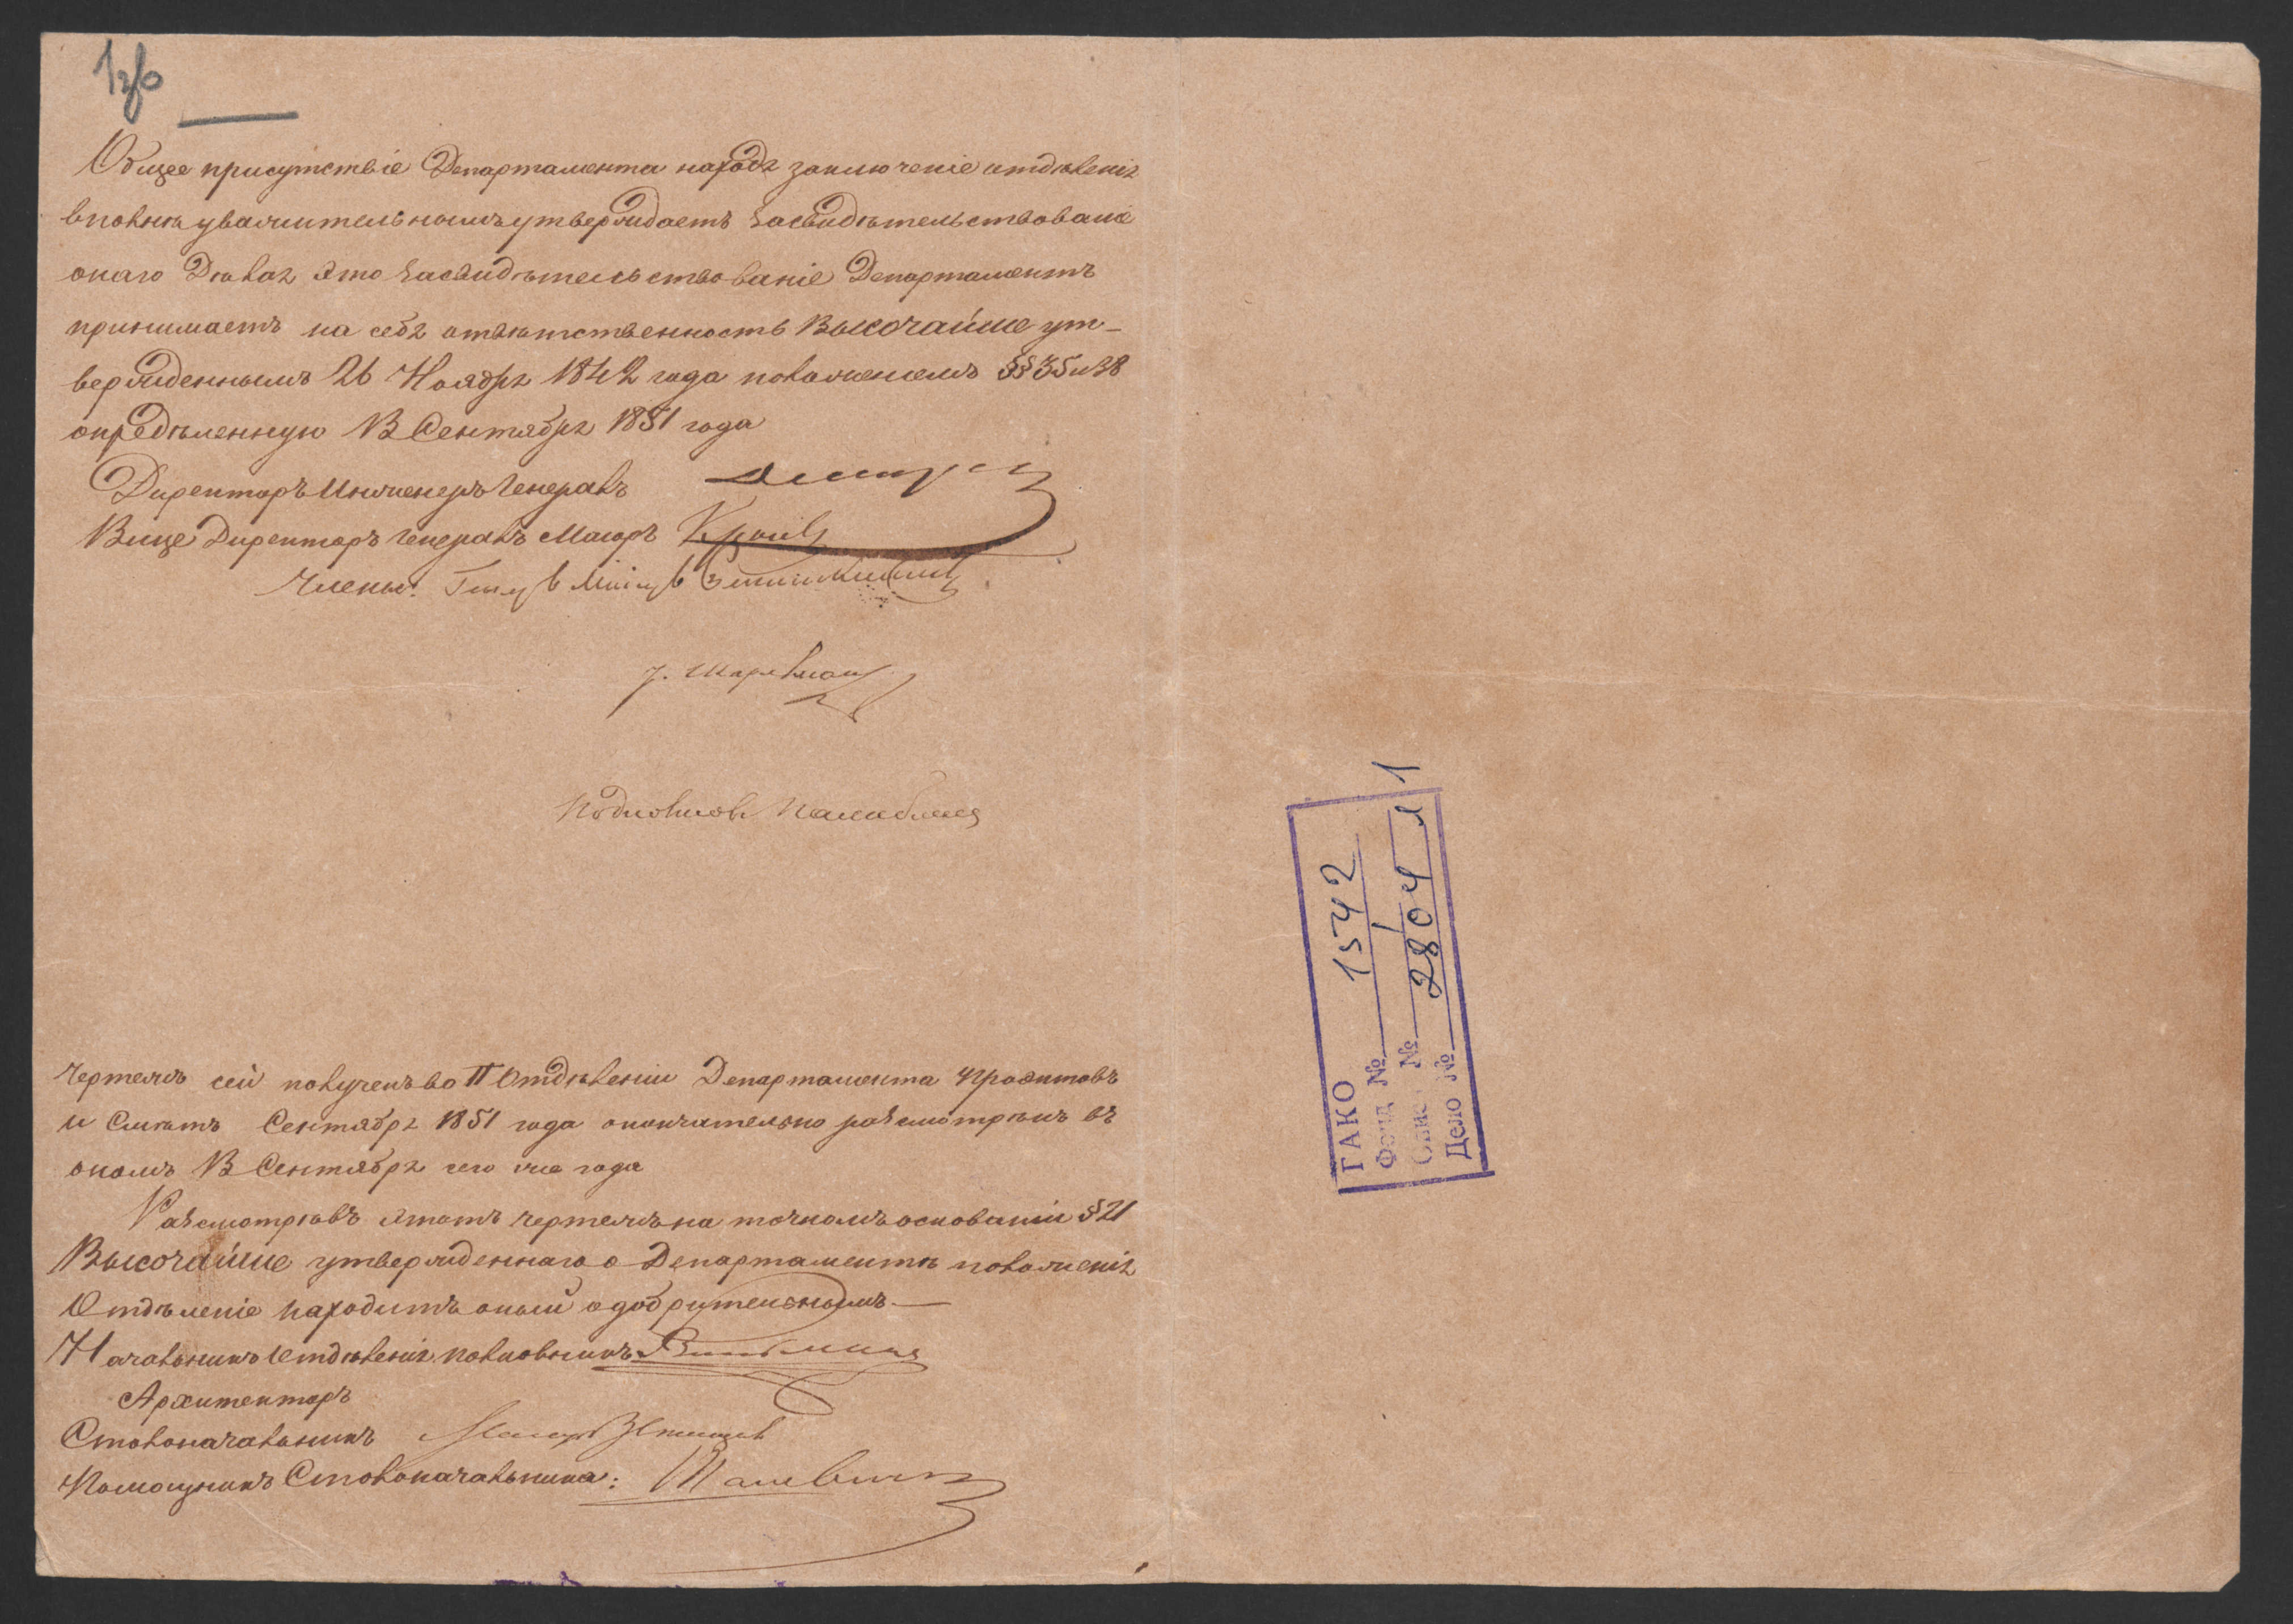 Общее присутствіе Департамента находя заключеніе отдѣленія
вполнѣ уважительнымъ утверждаетъ Засвидѣтельствованіе
онаго Дѣлая это Засвидѣтельствованіе Департаментъ
принимаетъ на себя отвѣтственность Высочайше ут-
вержденнымъ 26 Ноября 1842 года положеніемъ §§ 35 и 38
опредѣленную 13 Сентября 1851 года
Директоръ Инженеръ Генералъ
Вице Директоръ Генералъ Маіоръ
Члены:
Чертежъ сей полученъ во II Отдѣленіи Департамента Проэктовъ
и Смѣтъ Сентября 1851 года окончательно разсмотрѣнъ въ
ономъ 13 Сентября сего же года
Разсмотрѣвъ этотъ чертежъ на точномъ основаніи § 21
Высочайше утвержденнаго о Департаментѣ положенія
Отдѣленіе находитъ оный одобрительнымъ.—
Начальникъ Отдѣленія Полковникъ
Архитекторъ
Столоначальникъ
Помощникъ Столоначальника:
ГАКО
Фонд № 1542
Опис № 1
Дело № 2804 л 1